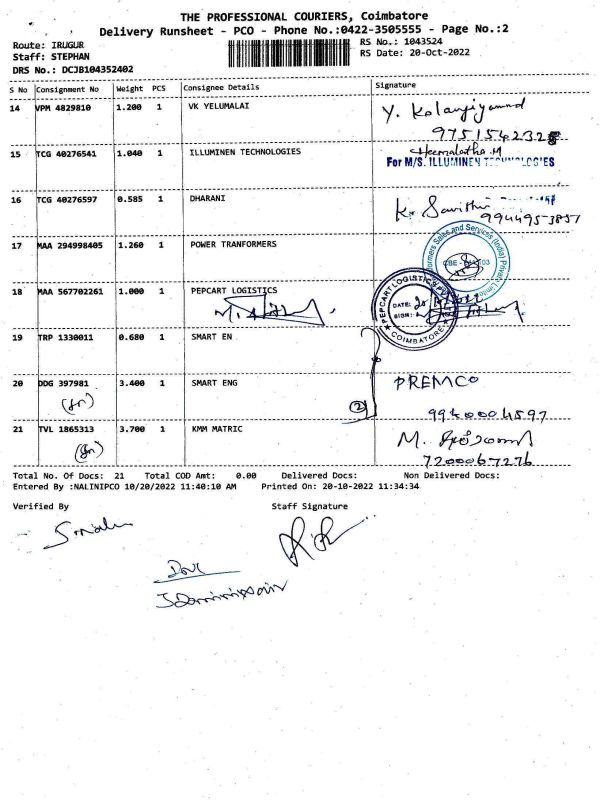 THE PROFESSIONAL COURIERS, Coimbatore
Delivery Runsheet - PCO - Phone No.:0422-3505555 - Page No.:2
Route: IRUGUR
RS No.: 1043524
Staff: STEPHAN
RS Date: 20-Oct-2022
DRS No.: DCJB104352402
S No Consignment No Weight PCS Consignee Details Signature
14 VPM 4829810 1.200 1 VK YELUMALAI
15 TCG 40276541 1.040 1 ILLUMINEN TECHNOLOGIES Heemalatha.M
For M/S. ILLUMINEN TECHNOLOGIES
16 TCG 40276597 0.585 1 DHARANI K. Savithri
17 MAA 294998405 1.260 1 POWER TRANFORMERS
18 MAA 567702261 1.000 1 PEPCART LOGISTICS
PEPCART LOGISTICS
DATE:
SIGN:
COIMBATORE
19 TRP 1330011 0.680 1 SMART EN
20 DDG 397981 3.400 1 SMART ENG PREMCO
(2)
21 TVL 1865313 3.700 1 KMM MATRIC
7200067276
Total No. Of Docs: 21 Total COD Amt: 0.00 Delivered Docs: Non Delivered Docs:
Entered By :NALINIPCO 10/20/2022 11:40:10 AM Printed On: 20-10-2022 11:34:34
Verified By Staff Signature